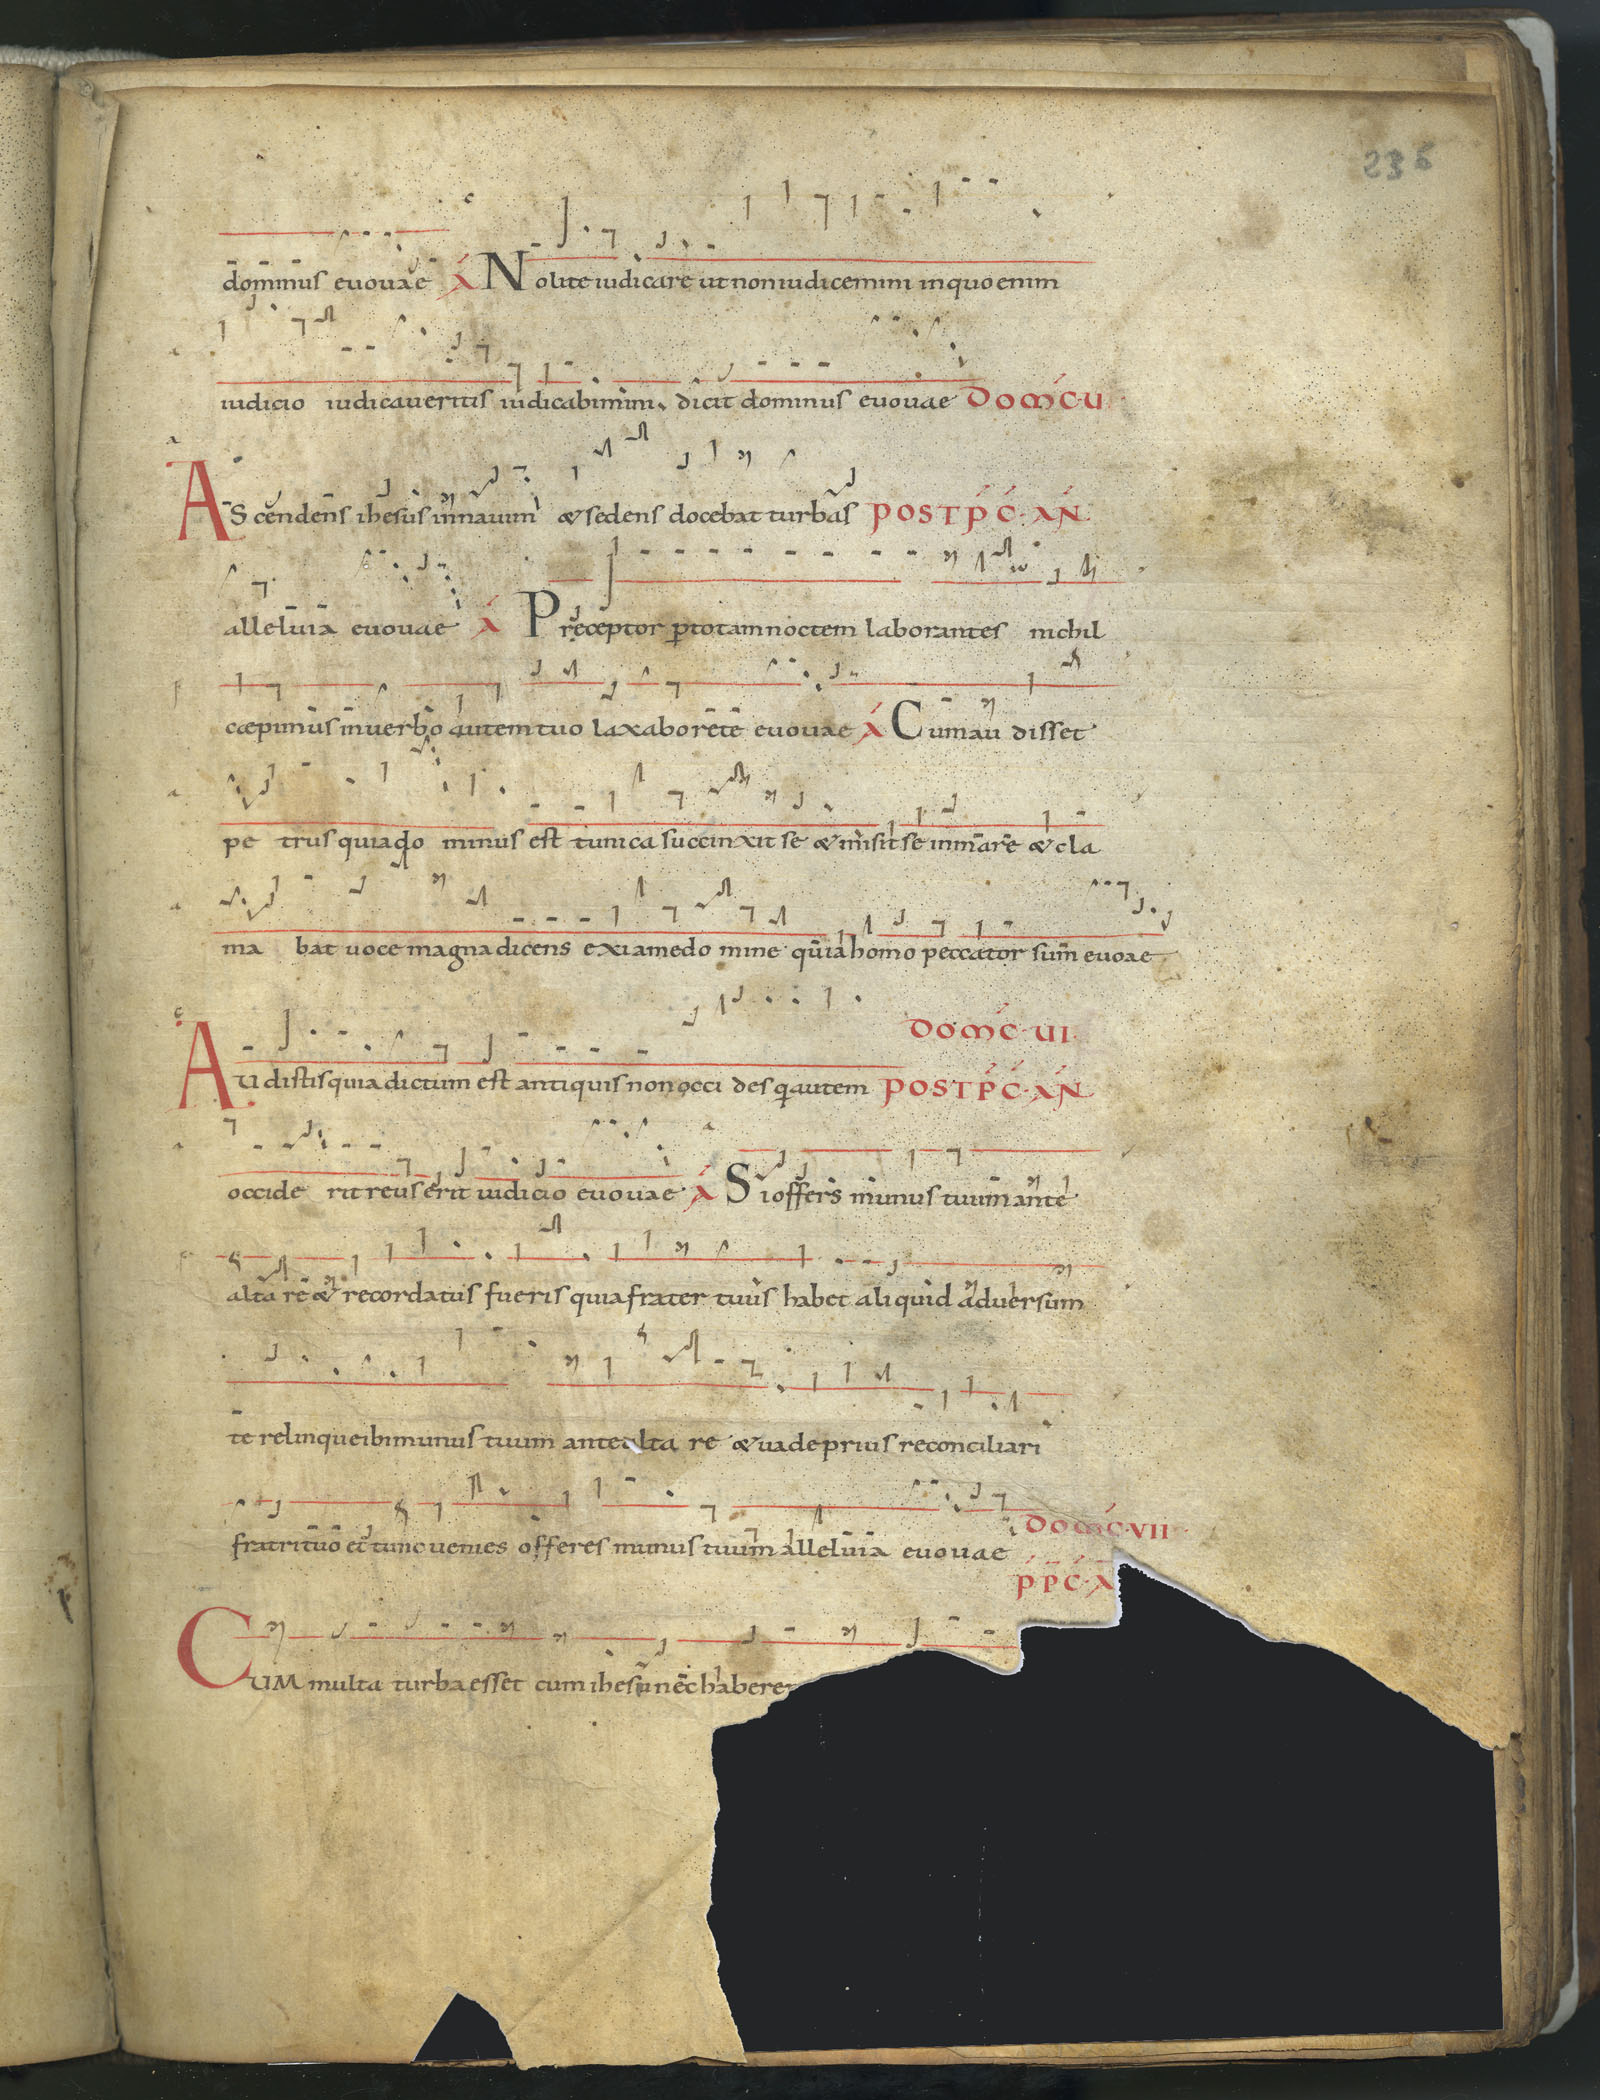 236
dominus euouae A Nolite iudicare ut non iudicemini in quo enim
iudicio iudicaueritis iudicabimini, dicit dominus euouae DOMC U
AScendens ihesus in nauim & sedens docebat turbas POST PC· AN
alleluia euouae A Preceptor ptotam noctem laborantes nichil
cæpimus in uerbo autem tuo laxabo rete euouae A Cum au disset
pe trus quia do minus est tunica succinxit se & misit se in mare & cla
ma bat uoce magna dicens exi a me do mine quia homo peccator sum euoae
DOMC· UI·
AUdistis quia dictum est antiquis non occi des q autem POST PC· AN
occide rit reus erit iudicio euouae A Si offers munus tuum ante
alta re & recordatus fueris quia frater tuus habet aliquid aduersum
te relinque ibi munus tuum ante alta re & uade prius reconciliari
fratri tuo et tunc uenies offeres munus tuum alleluia euouae DOMC·VII
P PC· A
CUM multa turba esset cum ihesu nec haberen